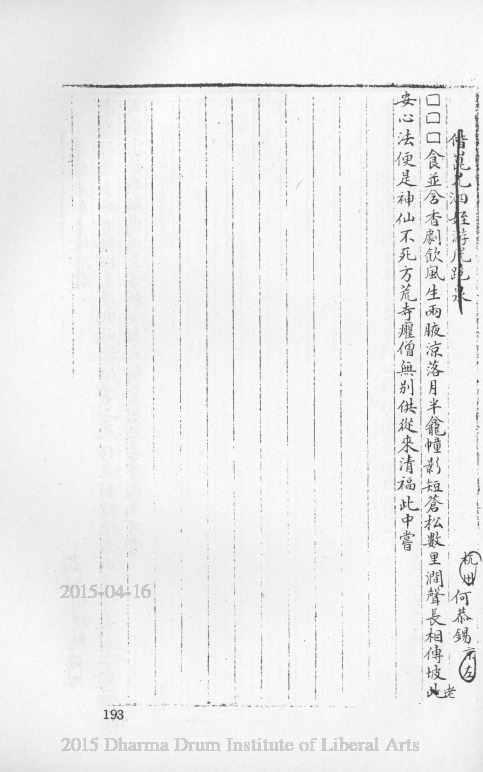 偕范允洄姪游虎跑泉
杭州何恭錫京左
□□□食並含杏劇飲風生兩腋涼落月半龕幢影短蒼松數里澗聲長相傳坡此老
安心法便是神仙不死方荒寺癯僧無別供從來清福此中嘗
2015-04-16
193
2015 Dharma Drum Institute of Liberal Arts